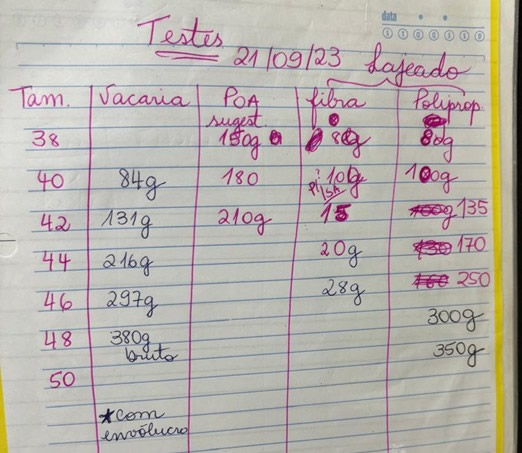 data
Testes
21/09/23 Lajeado
Tam. Vacaria POA fibra Poliprop.
sugest
38 150g 8g 80g
40 84g 180 10g 100g
p/ish
42 131g 210g 15 135
44 216g 20g 170
46 297g 28g 250
48 380g 300g
bruto 350g
50
*com
envólucro